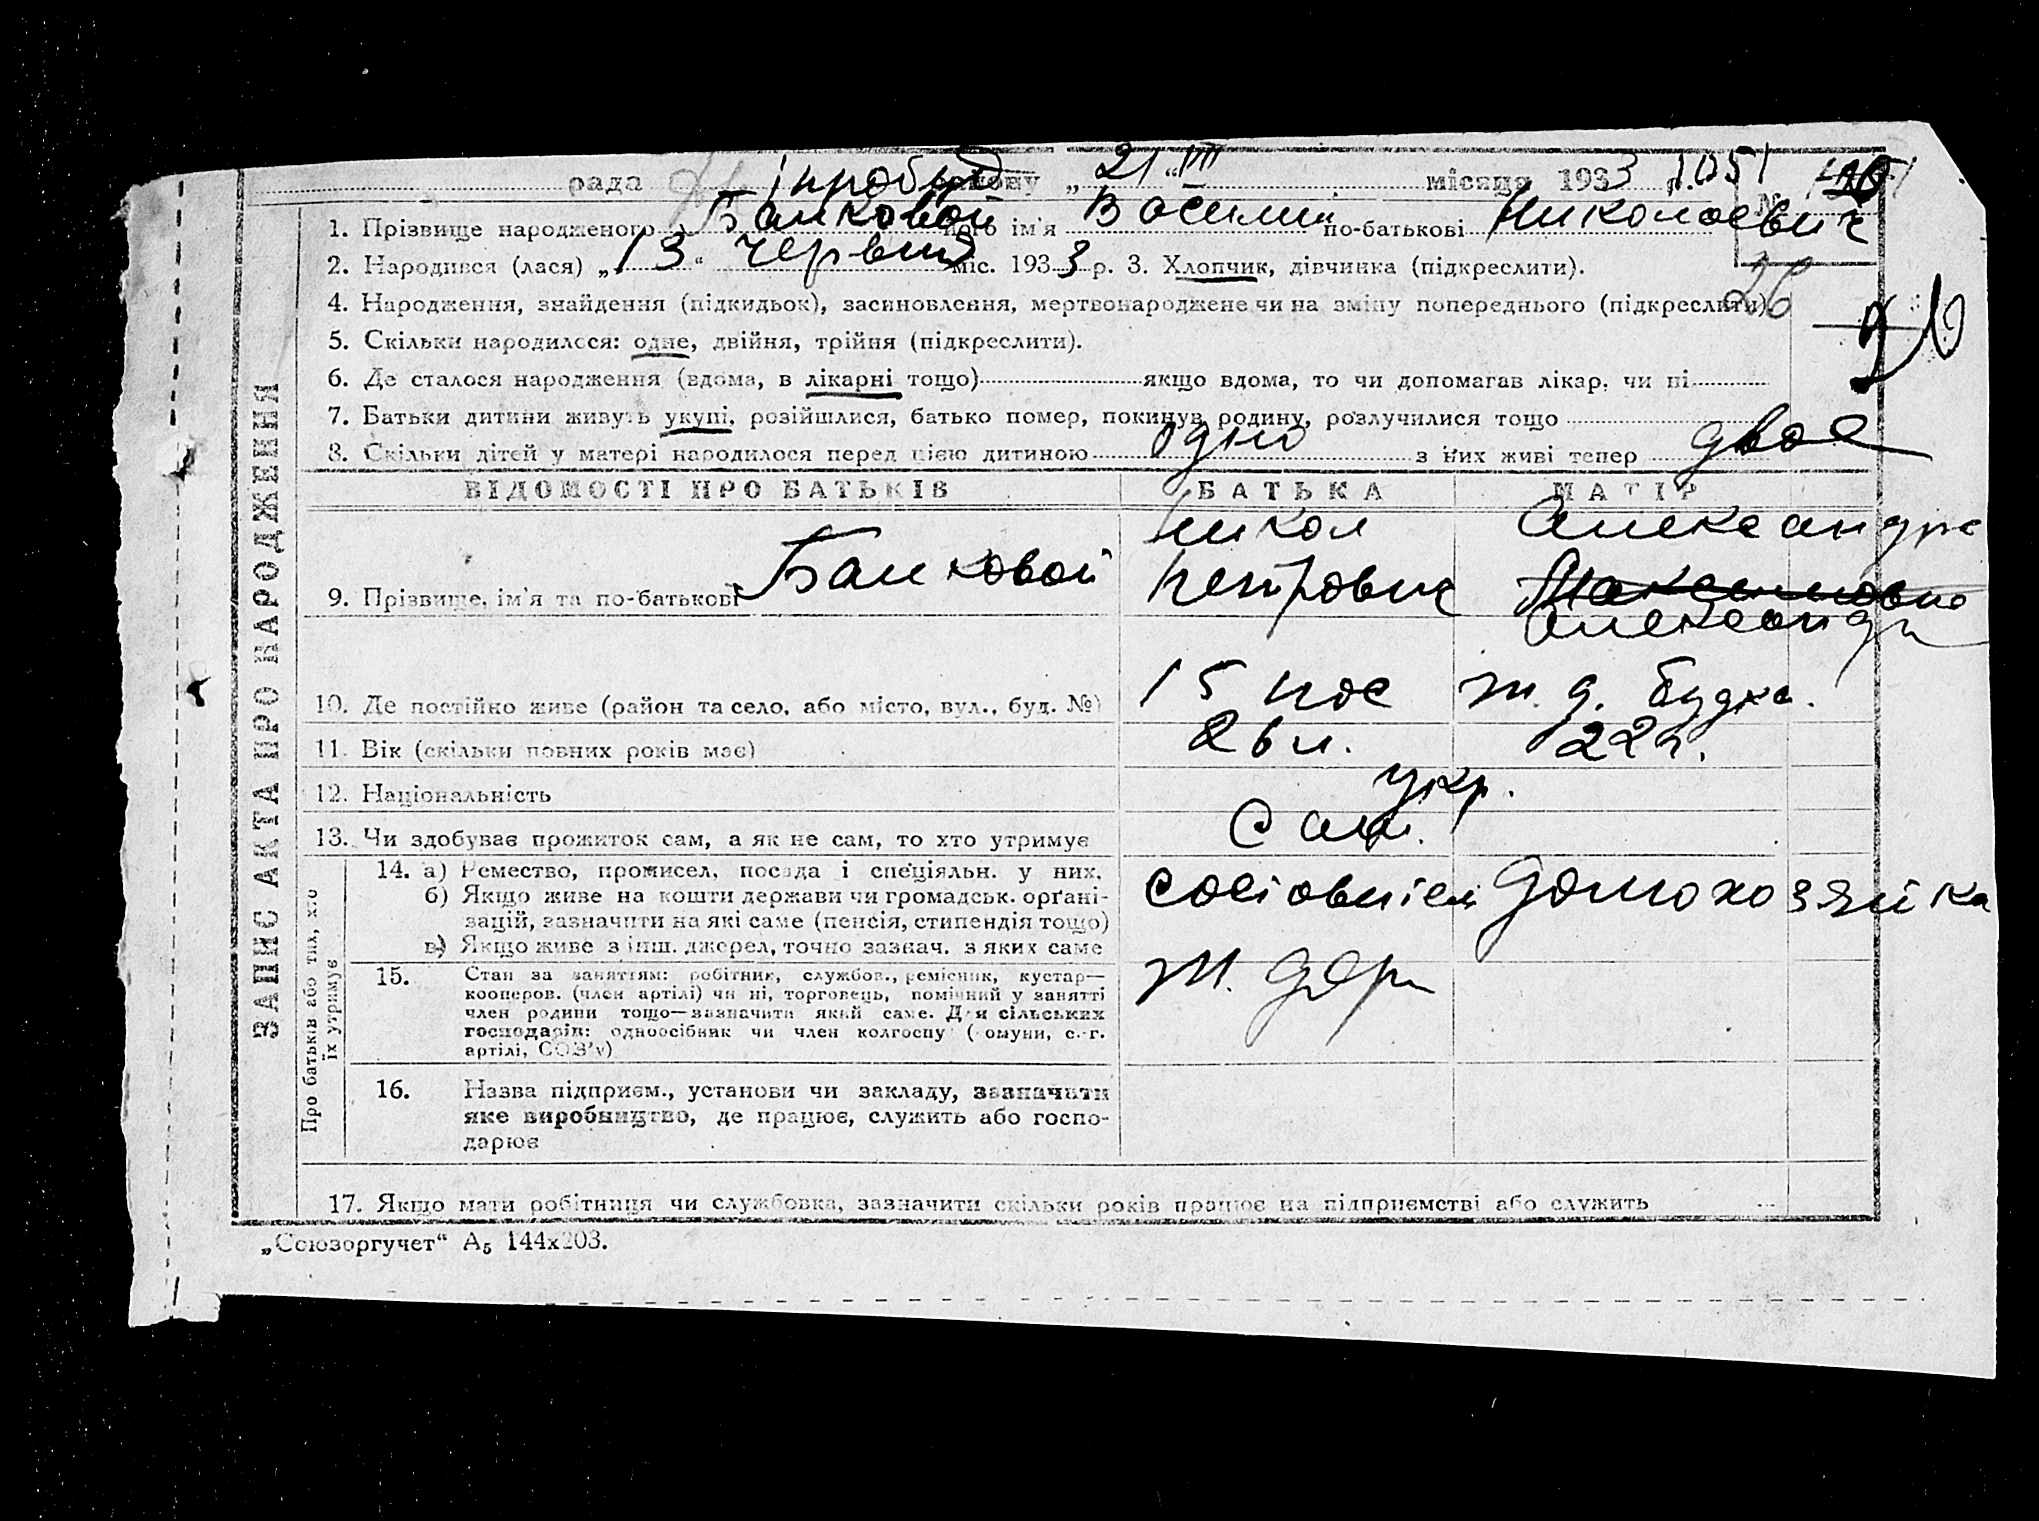 рада Дніпробуд району „21" VIII місяця 1933 р. 1051 №
1. Прізвище народженого Банковой його ім'я Василии по-батькові Николаевич
2. Народився (лася) „13" червня міс. 1933 р. 3. Хлопчик, дівчинка (підкреслити).
26
4. Народження, знайдення (підкидьок), засиновлення, мертвонароджене чи на зміну попереднього (підкреслити)
5. Скільки народилося: одне, двійня, трійня (підкреслити).
6. Де сталося народження (вдома, в лікарні тощо) якщо вдома, то чи допомагав лікар, чи ні
7. Батьки дитини живуть укупі, розійшлися, батько помер, покинув родину, розлучилися тощо
8. Скільки дітей у матері народилося перед цією дитиною одно з них живі тепер двое
ВІДОМОСТІ ПРО БАТЬКІВ БАТЬКА МАТІР
Никол Александра
9. Прізвище, ім'я та по-батькові Банковой Петрович Максимовна
Александр
10. Де постійно живе (район та село, або місто, вул., буд. №) 15 пос ж. д. будка.
11. Вік (скільки повних років має) 26 л. 22 л.
12. Національність укр.
13. Чи здобуває прожиток сам, а як не сам, то хто утримує Сам.
14. а) Ремество, промисел, посада і спеціяльн. у них. домохозяйка
б) Якщо живе на кошти держави чи громадськ. орґані-
зацій, зазначити на які саме (пенсія, стипендія тощо)
в) Якщо живе з інш. джерел, точно зазнач. з яких саме
15. Стан за заняттям: робітник, службов., ремісник, кустар—
кооперов. (член артілі) чи ні, торговець, помічний у занятті
член родини тощо—зазначити який саме. Для сільських
господарів: одноосібник чи член колгоспу (комуни, с.-г.
артілі, СОЗ'у)
16. Назва підприєм., установи чи закладу, зазначити
яке виробництво, де працює, служить або госпо-
дарює
17. Якщо мати робітниця чи службовка, зазначити скільки років працює на підприємстві або служить
„Союзоргучет" А5 144х203.
ЗАПИС АКТА ПРО НАРОДЖЕННЯ
Про батьків або тих, хто
їх утримує